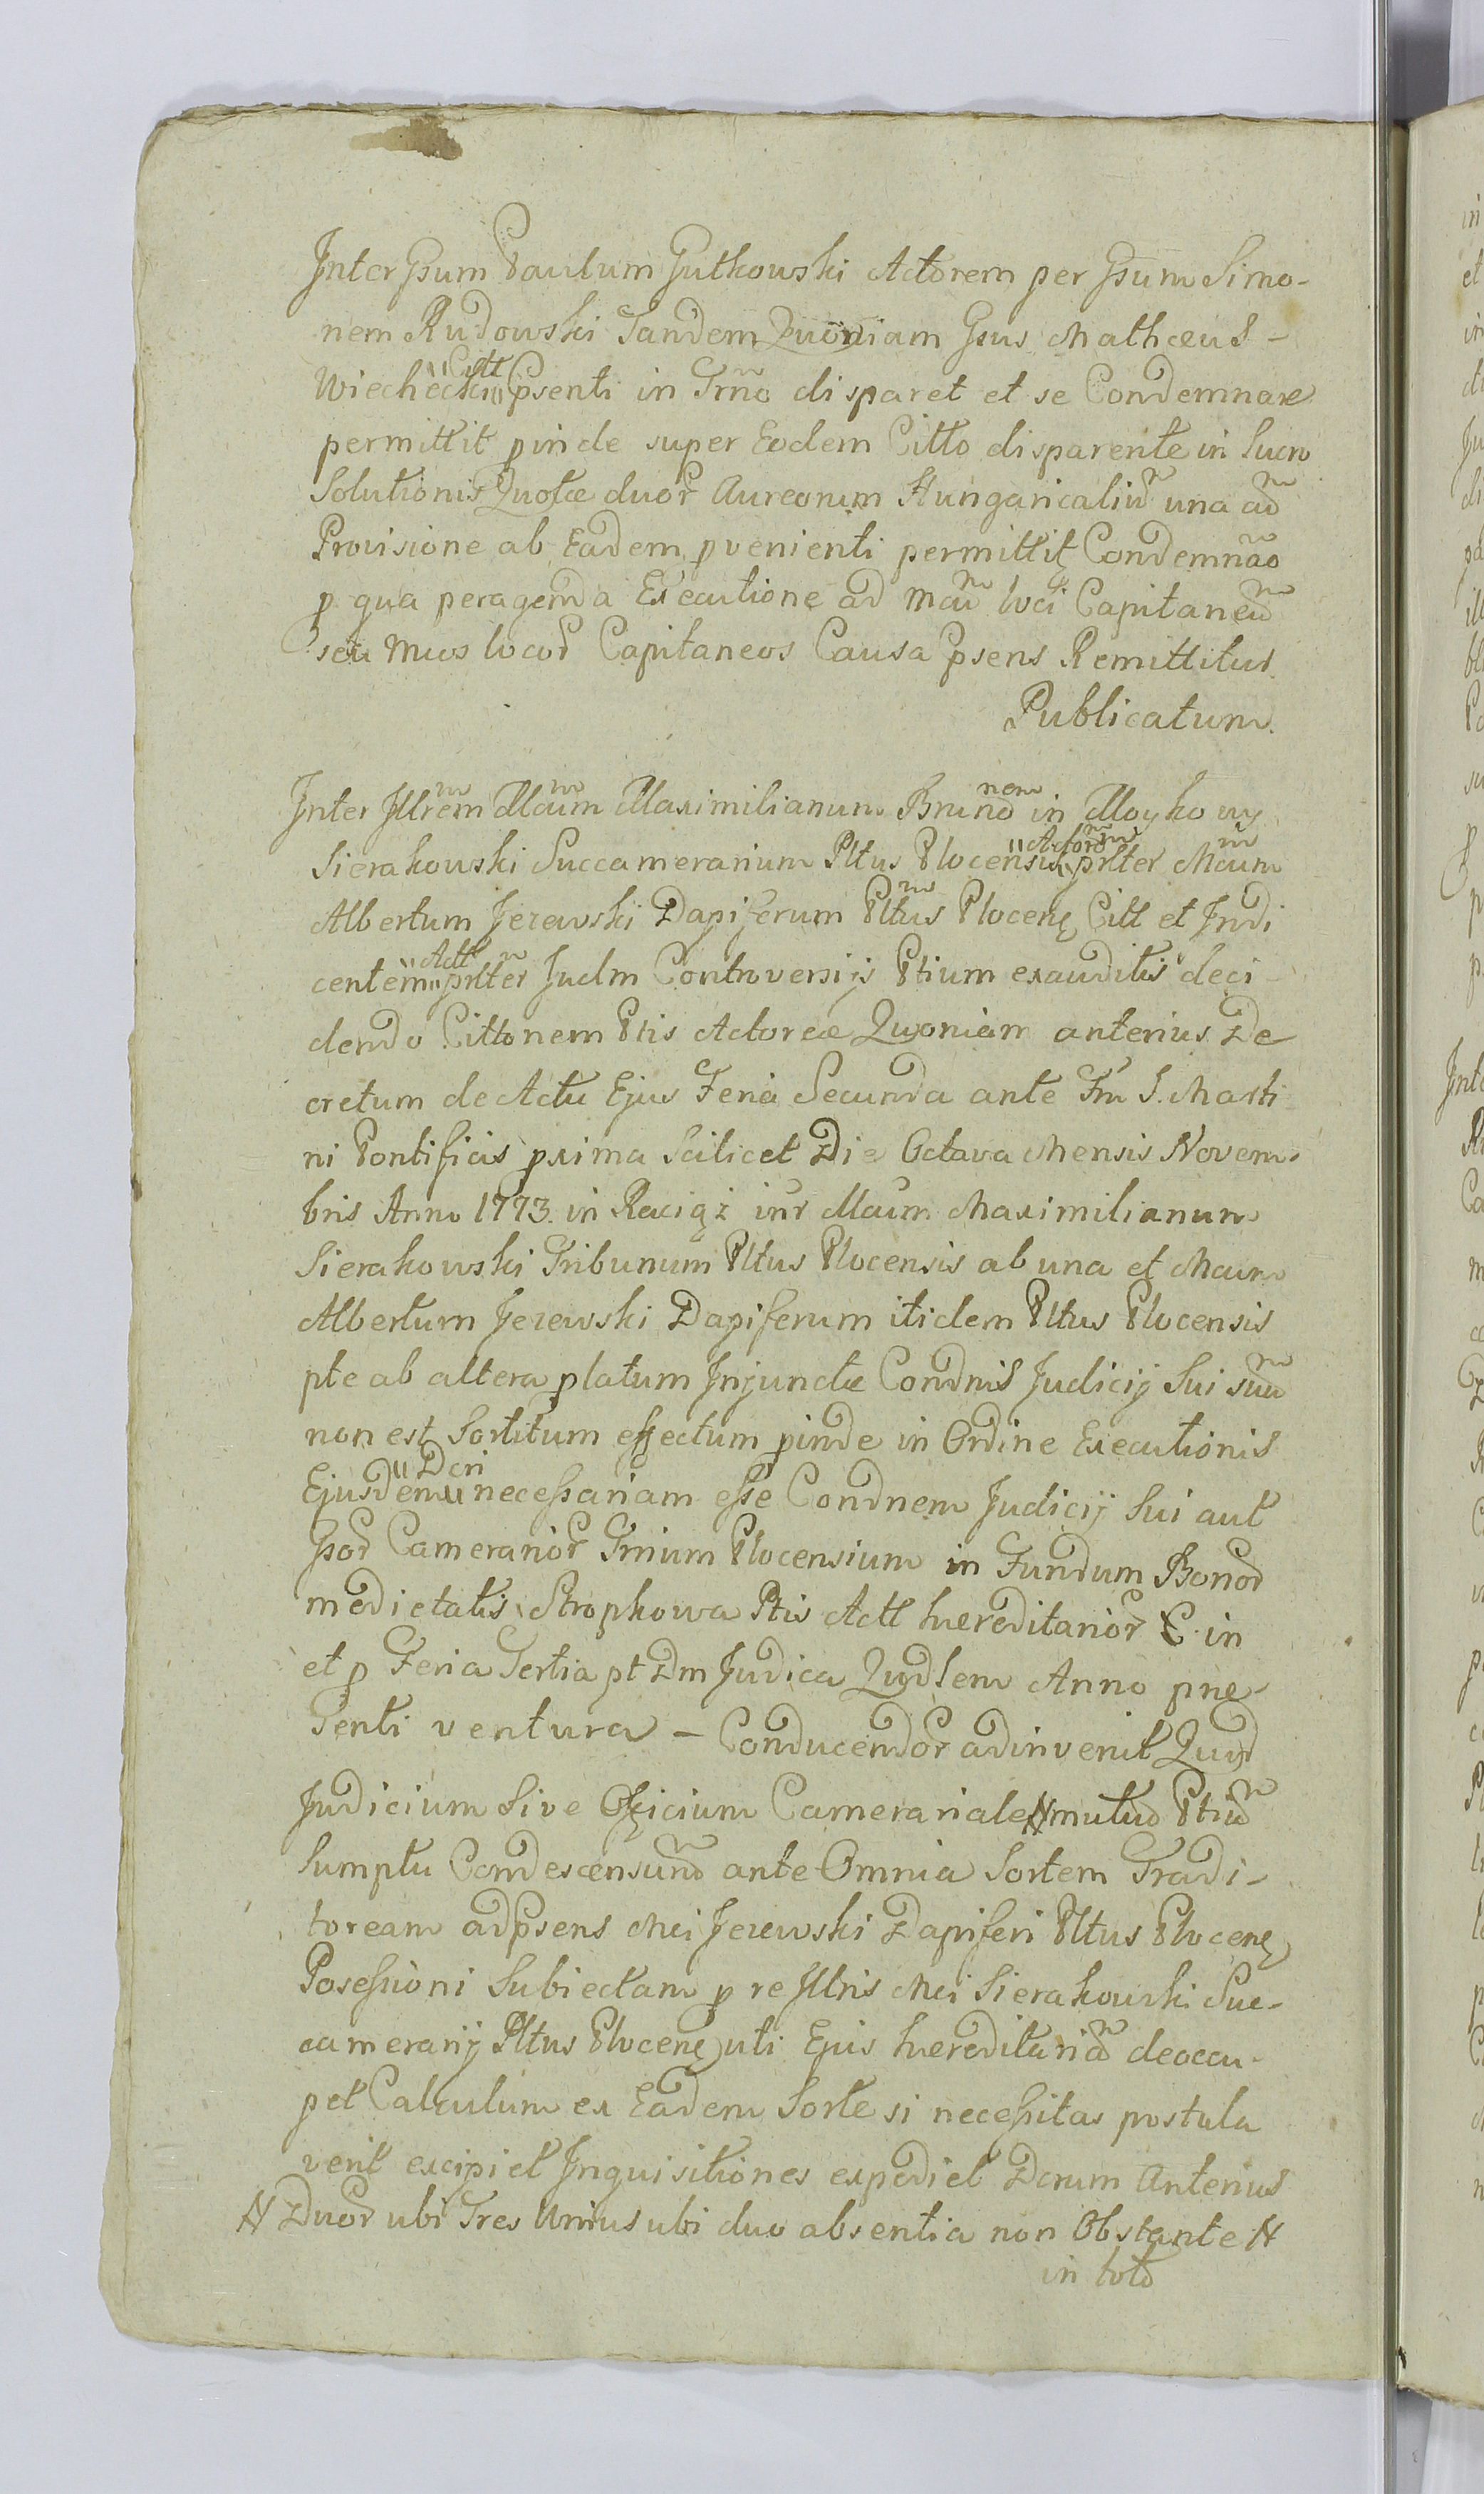 Inter Gsum Paulum Gutkowski Actorem per Gsum Simo-
nem Rudowski Tandem Quoniam Gsus Mathæus -
Wiechecki "Citt" Psenti in Trño disparet et se Condemnare
permittit pinde super Eodem Citto disparente in Lucro
Solutionis Quotæ duor Aureorum Hungaricaliu una ad
Provisione ab Eadem pvenienti permittit Condemnão
p qua peragenda Executione ad Mcum loci Capitaneu
seu Mcos locor Capitaneos Causa Psens Remittitur.
Publicatum.
Inter Illrem Mcum Maximilianum Brunonem in
Sierakowski Succamerarium Pltus Plocensis "Actorem" pnlter Mcum
Albertum Jezewski Dapiferum Pltus Plocen Citt et Indi
centem "Actt" pnlter Judm Controversijs Ptium exauditis deci-
dendo Cittonem Ptis Actoreæ Quoniam anterius De
cretum de Actu Ejus Feria Secunda ante Fm S. Marti
ni Pontificis pxima Scilicet Die Octava Mensis Novem-
bris Anno 1773. in Raciąż intr Mcum Maximilianum
Sierakowski Tribunum Pltus Plocensis ab una et Mcum
Albertum Jezewski Dapiferum itidem Pltus Plocensis
pte ab altera platum Injunctæ Condnis Judicij Sui suu
non est Sortitum effectum pinde in Ordine Executionis
Ejusdem "Dcri" necessariam esse Condnem Judicij Sui aut
Gsor Camerarior Trrium Plocensium in Fundum Bonor
medietatis Stropkowa Ptis Actt hæreditarior C. in
et p Feria Tertia pt Dm Judica Qudlem Anno præ-
senti ventura - Conducendor adinvenit Quod
Judicium Sive Officium Camerariale # mutuo Ptiu
Sumptu Condescensum ante Omnia Sortem Tradi-
toream ad Psens Mci Jezewski Dapiferi Pltus Plocen
Posessioni Subiectam p re Illris Mci Sierakowski Suc-
camerarij Pltus Plocen uti Ejus hæreditariã deoccu-
pet Calculum ex Eadem Sorte si necessitas postula
verit excipiet Inquisitiones expediet Dcrum Anterius
# Duor ubi Tres Unius ubi duo absentia non Obstante #
in toto